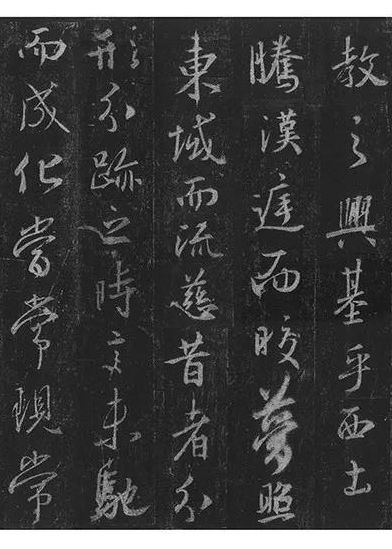 教之興基乎西土
騰漢庭而皎夢照
東域而流慈昔者分
形分跡之時言未馳
而成化當常現常